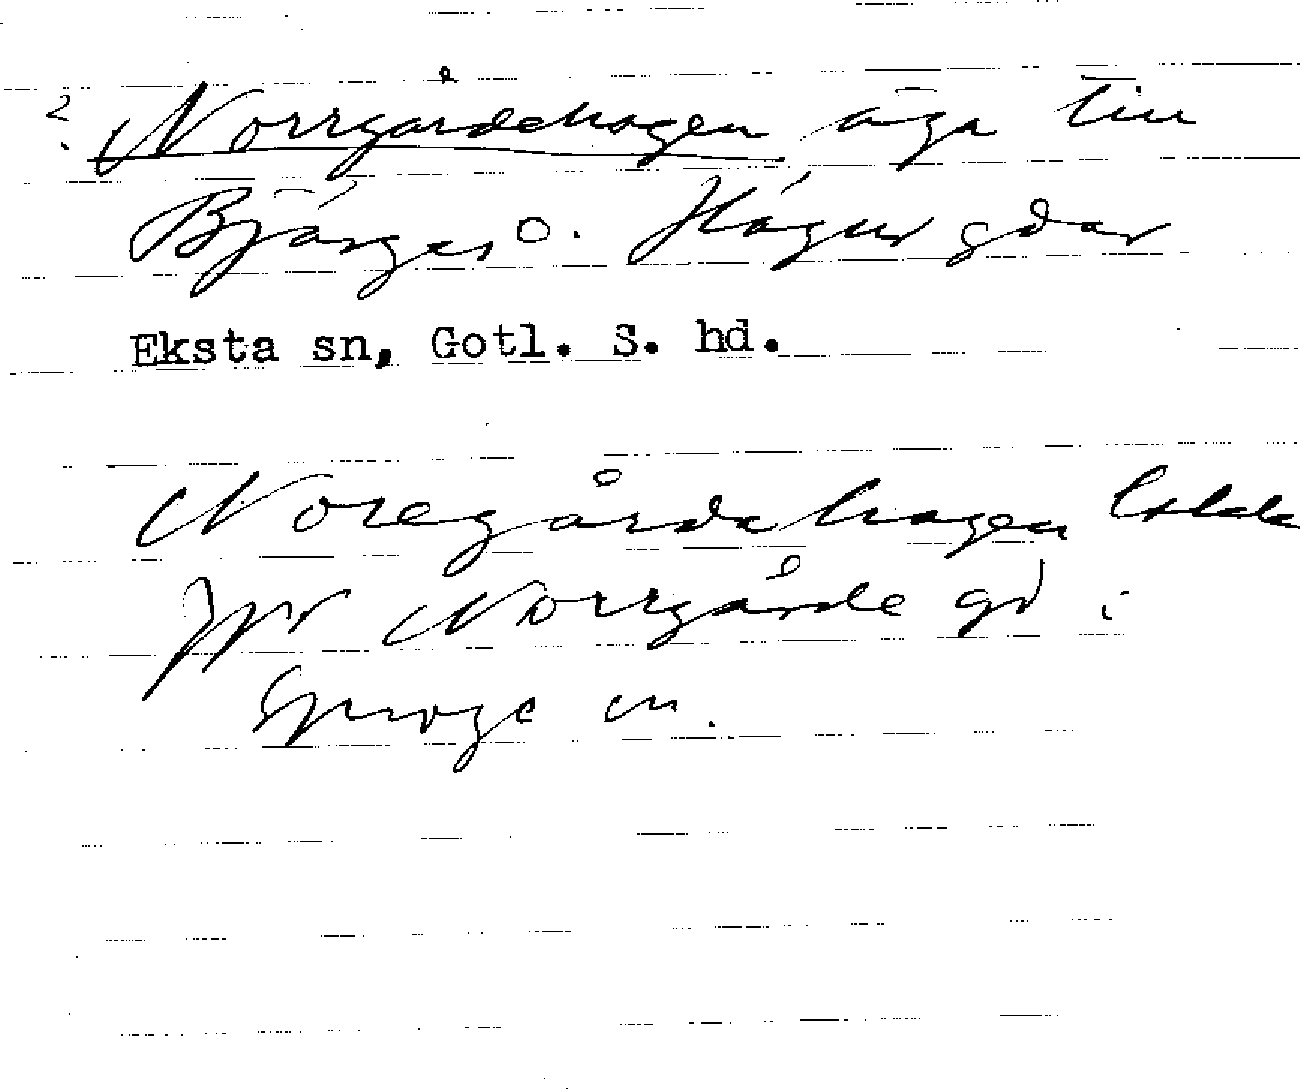 ? Norrgårdehagen äga till
Bjärges o. Hägur gdar
Eksta sn, Gotl. S. hd.
Noregårdahagen
Jfr Norrgårde gd i
Sproge sn.